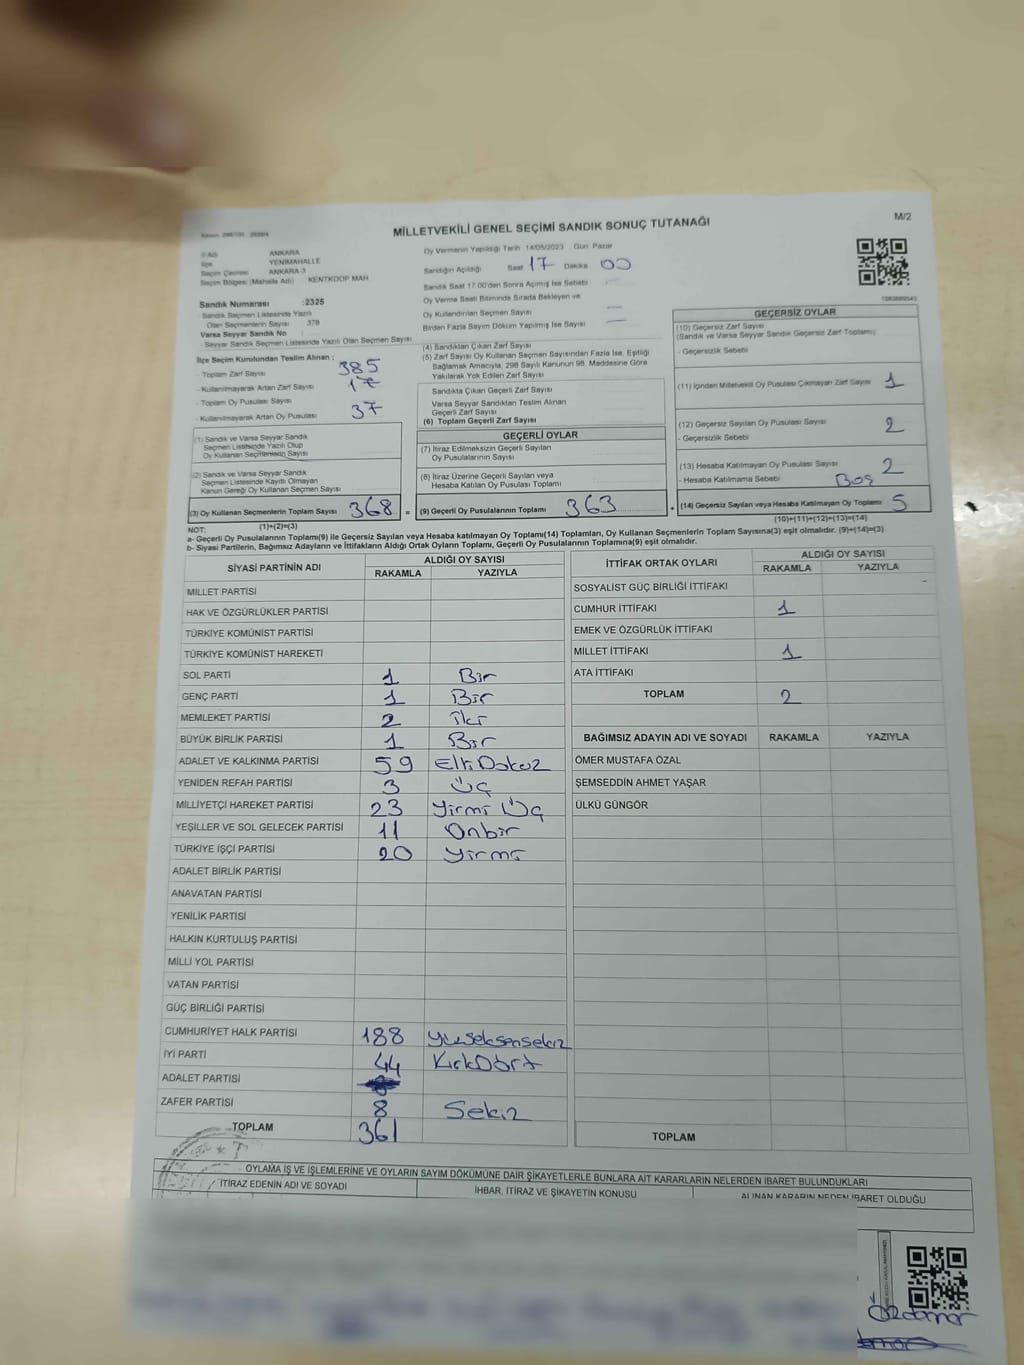 M/2
MİLLETVEKİLİ GENEL SEÇİMİ SANDIK SONUÇ TUTANAĞI
İl Adı ANKARA
İlçe YENİMAHALLE
Seçim Çevresi ANKARA-3
Seçim Bölgesi (Mahalle Adı) KENTKOOP MAH
Sandık Numarası :2325
Sandık Seçmen Listesinde Yazılı
Olan Seçmenlerin Sayısı 378
Varsa Seyyar Sandık No :
- Seyyar Sandık Seçmen Listesinde Yazılı Olan Seçmen Sayısı
İlçe Seçim Kurulundan Teslim Alınan :
- Toplam Zarf Sayısı 385
- Kullanılmayarak Artan Zarf Sayısı 17
- Toplam Oy Pusulası Sayısı
- Kullanılmayarak Artan Oy Pusulası 37
(1) Sandık ve Varsa Seyyar Sandık
Seçmen Listesinde Yazılı Olup
Oy Kullanan Seçmenlerin Sayısı
(2) Sandık ve Varsa Seyyar Sandık
Seçmen Listesinde Kayıtlı Olmayan
Kanun Gereği Oy Kullanan Seçmen Sayısı
(3) Oy Kullanan Seçmenlerin Toplam Sayısı 368 =
(1)+(2)=(3)
Oy Vermenin Yapıldığı Tarih :14/05/2023 Gün: Pazar
Sandığın Açıldığı Saat 17 Dakika 00
Sandık Saat 17.00'den Sonra Açılmış İse Sebebi
Oy Verme Saati Bitiminde Sırada Bekleyen ve
Oy Kullandırılan Seçmen Sayısı —
Birden Fazla Sayım Döküm Yapılmış İse Sayısı —
(4) Sandıktan Çıkan Zarf Sayısı
(5) Zarf Sayısı Oy Kullanan Seçmen Sayısından Fazla İse, Eşitliği
Sağlamak Amacıyla, 298 Sayılı Kanunun 98. Maddesine Göre
Yakılarak Yok Edilen Zarf Sayısı
Sandıkta Çıkan Geçerli Zarf Sayısı
Varsa Seyyar Sandıktan Teslim Alınan
Geçerli Zarf Sayısı
(6) Toplam Geçerli Zarf Sayısı
GEÇERLİ OYLAR
(7) İtiraz Edilmeksizin Geçerli Sayılan
Oy Pusulalarının Sayısı
(8) İtiraz Üzerine Geçerli Sayılan veya
Hesaba Katılan Oy Pusulası Toplamı
(9) Geçerli Oy Pusulalarının Toplamı 363 +
GEÇERSİZ OYLAR
(10) Geçersiz Zarf Sayısı
(Sandık ve Varsa Seyyar Sandık Geçersiz Zarf Toplamı)
- Geçersizlik Sebebi
(11) İçinden Milletvekili Oy Pusulası Çıkmayan Zarf Sayısı 1
(12) Geçersiz Sayılan Oy Pusulası Sayısı 2
- Geçersizlik Sebebi
(13) Hesaba Katılmayan Oy Pusulası Sayısı 2
- Hesaba Katılmama Sebebi Boş
(14) Geçersiz Sayılan veya Hesaba Katılmayan Oy Toplamı 5
(10)+(11)+(12)+(13)=(14)
NOT:
a- Geçerli Oy Pusulalarının Toplamı(9) ile Geçersiz Sayılan veya Hesaba katılmayan Oy Toplamı(14) Toplamları, Oy Kullanan Seçmenlerin Toplam Sayısına(3) eşit olmalıdır. (9)+(14)=(3)
b- Siyasi Partilerin, Bağımsız Adayların ve İttifakların Aldığı Ortak Oyların Toplamı, Geçerli Oy Pusulalarının Toplamına(9) eşit olmalıdır.
SİYASİ PARTİNİN ADI ALDIĞI OY SAYISI
RAKAMLA YAZIYLA
MİLLET PARTİSİ
HAK VE ÖZGÜRLÜKLER PARTİSİ
TÜRKİYE KOMÜNİST PARTİSİ
TÜRKİYE KOMÜNİST HAREKETİ
SOL PARTİ 1 Bir
GENÇ PARTİ 1 Bir
MEMLEKET PARTİSİ 2 İki
BÜYÜK BİRLİK PARTİSİ 1 Bir
ADALET VE KALKINMA PARTİSİ 59 Elli Dokuz
YENİDEN REFAH PARTİSİ 3 Üç
MİLLİYETÇİ HAREKET PARTİSİ 23 Yirmi Üç
YEŞİLLER VE SOL GELECEK PARTİSİ 11 Onbir
TÜRKİYE İŞÇİ PARTİSİ 20 Yirmi
ADALET BİRLİK PARTİSİ
ANAVATAN PARTİSİ
YENİLİK PARTİSİ
HALKIN KURTULUŞ PARTİSİ
MİLLİ YOL PARTİSİ
VATAN PARTİSİ
GÜÇ BİRLİĞİ PARTİSİ
CUMHURİYET HALK PARTİSİ 188 Yüzseksensekiz
İYİ PARTİ 44 KırkDört
ADALET PARTİSİ
ZAFER PARTİSİ 8 Sekiz
TOPLAM 361
İTTİFAK ORTAK OYLARI ALDIĞI OY SAYISI
RAKAMLA YAZIYLA
SOSYALİST GÜÇ BİRLİĞİ İTTİFAKI
CUMHUR İTTİFAKI 1
EMEK VE ÖZGÜRLÜK İTTİFAKI
MİLLET İTTİFAKI 1
ATA İTTİFAKI
TOPLAM 2
BAĞIMSIZ ADAYIN ADI VE SOYADI RAKAMLA YAZIYLA
ÖMER MUSTAFA ÖZAL
ŞEMSEDDİN AHMET YAŞAR
ÜLKÜ GÜNGÖR
TOPLAM
OYLAMA İŞ VE İŞLEMLERİNE VE OYLARIN SAYIM DÖKÜMÜNE DAİR ŞİKAYETLERLE BUNLARA AİT KARARLARIN NELERDEN İBARET BULUNDUKLARI
İTİRAZ EDENİN ADI VE SOYADI İHBAR, İTİRAZ VE ŞİKAYETİN KONUSU ALINAN KARARIN NEDEN İBARET OLDUĞU